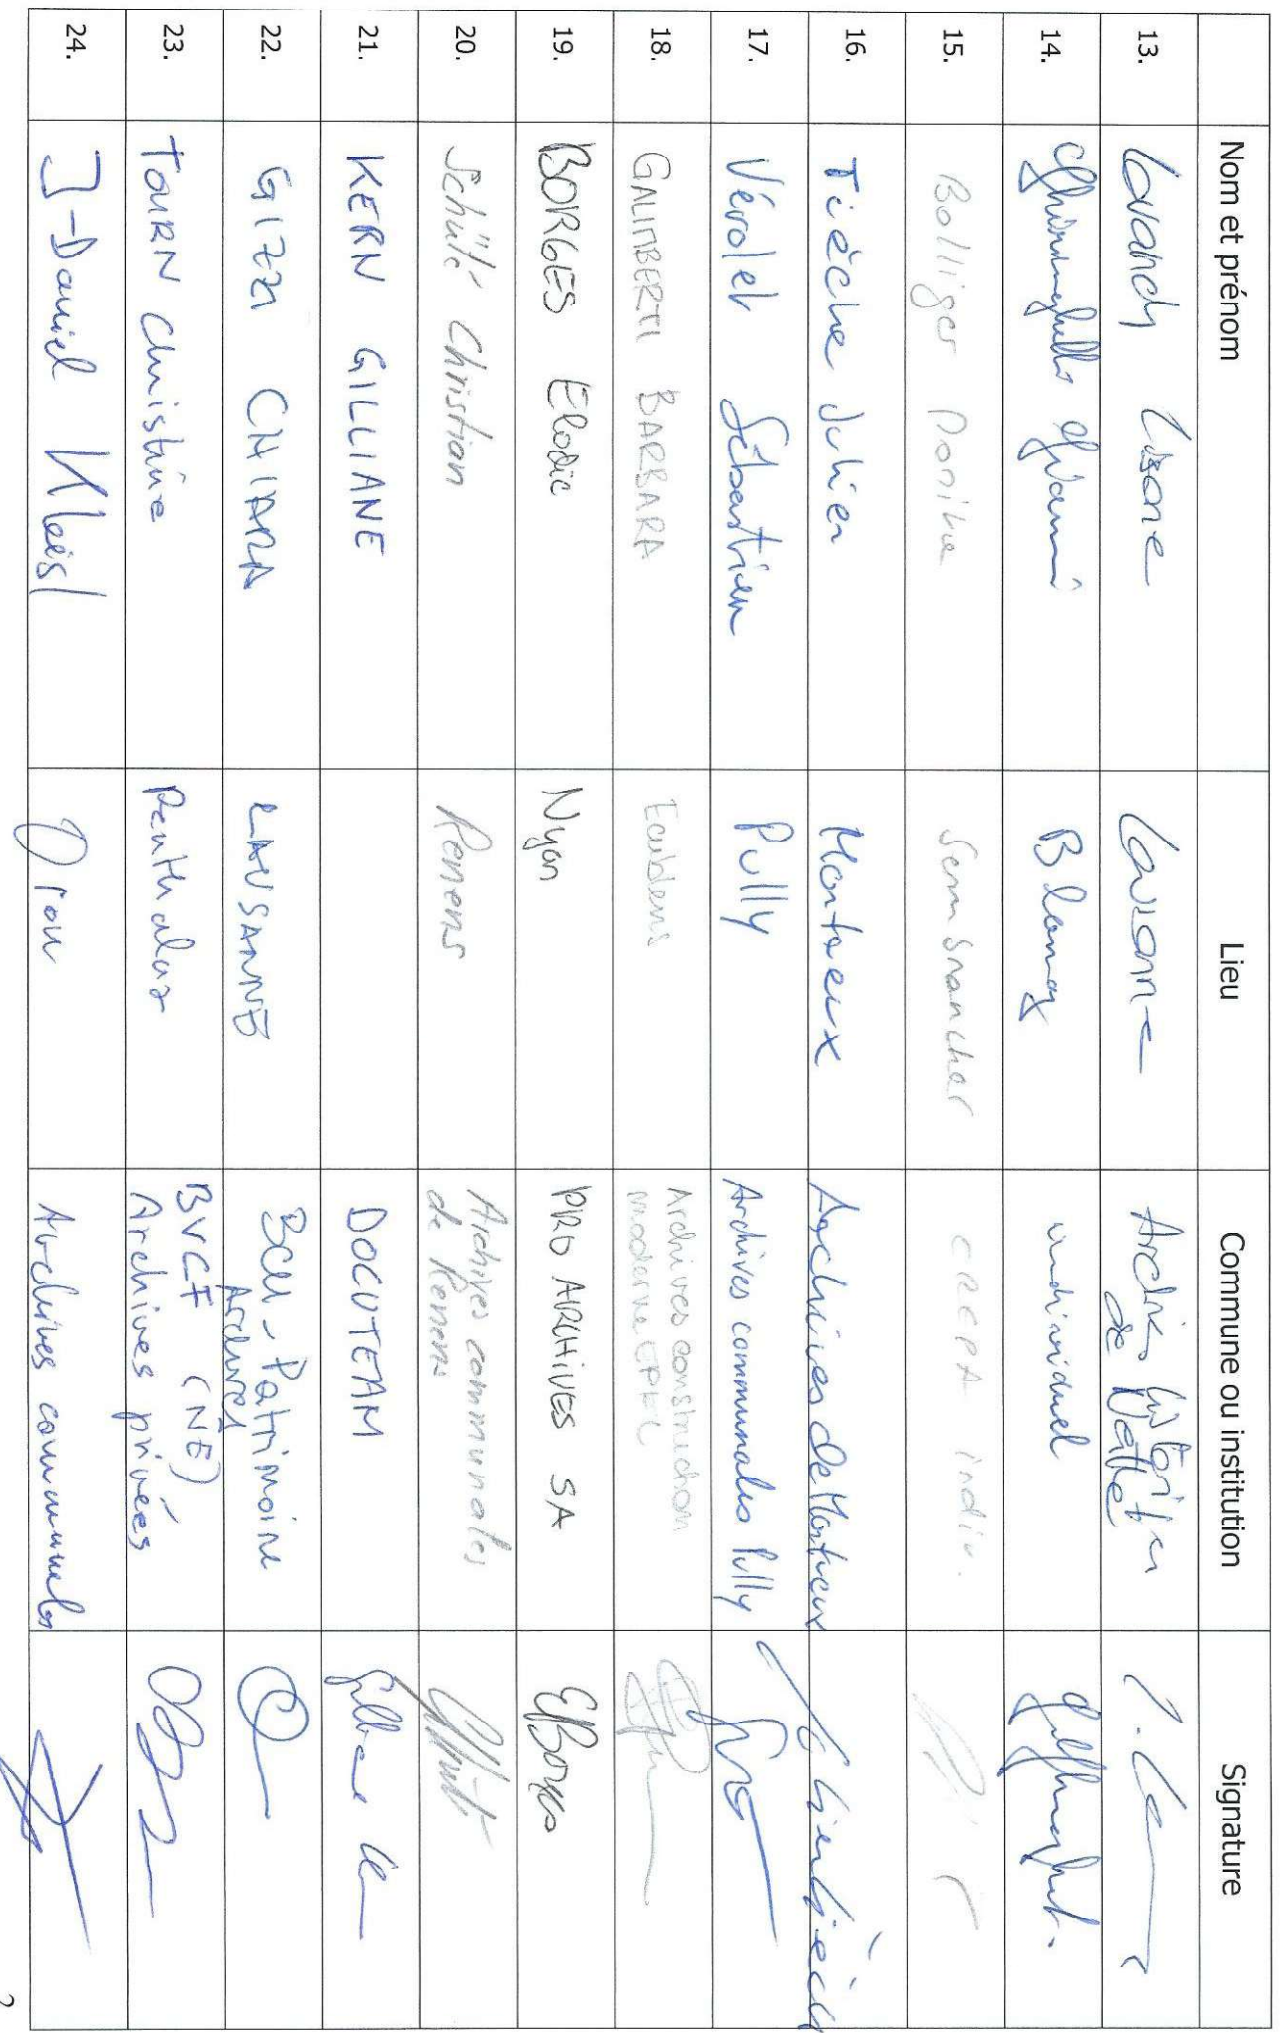 Nom et prénom Lieu Commune ou institution Signature
13.
14. Blonay individuel
15. Bolliger Sembrancher CREPA indiv.
16. Tièche Julien Montreux Archives de Montreux
17. Vérolet Sébastien Pully Archives communales Pully
18. GALIMBERTI BARBARA Ecublens Archives construction
moderne EPFL
19. BORGES Elodie Nyon PRO ARCHIVES SA EBorges
20. Schülé Christian Renens Archives communales
de Renens
21. KERN GILLIANE DOCUTEAM
22. GIZZI CHIARA LAUSANNE BCU - Patrimoine
Archives
23. TOURN Christine Penthalaz BVCF (NE)
Archives privées
24. J-Daniel Oron Archives communales
2